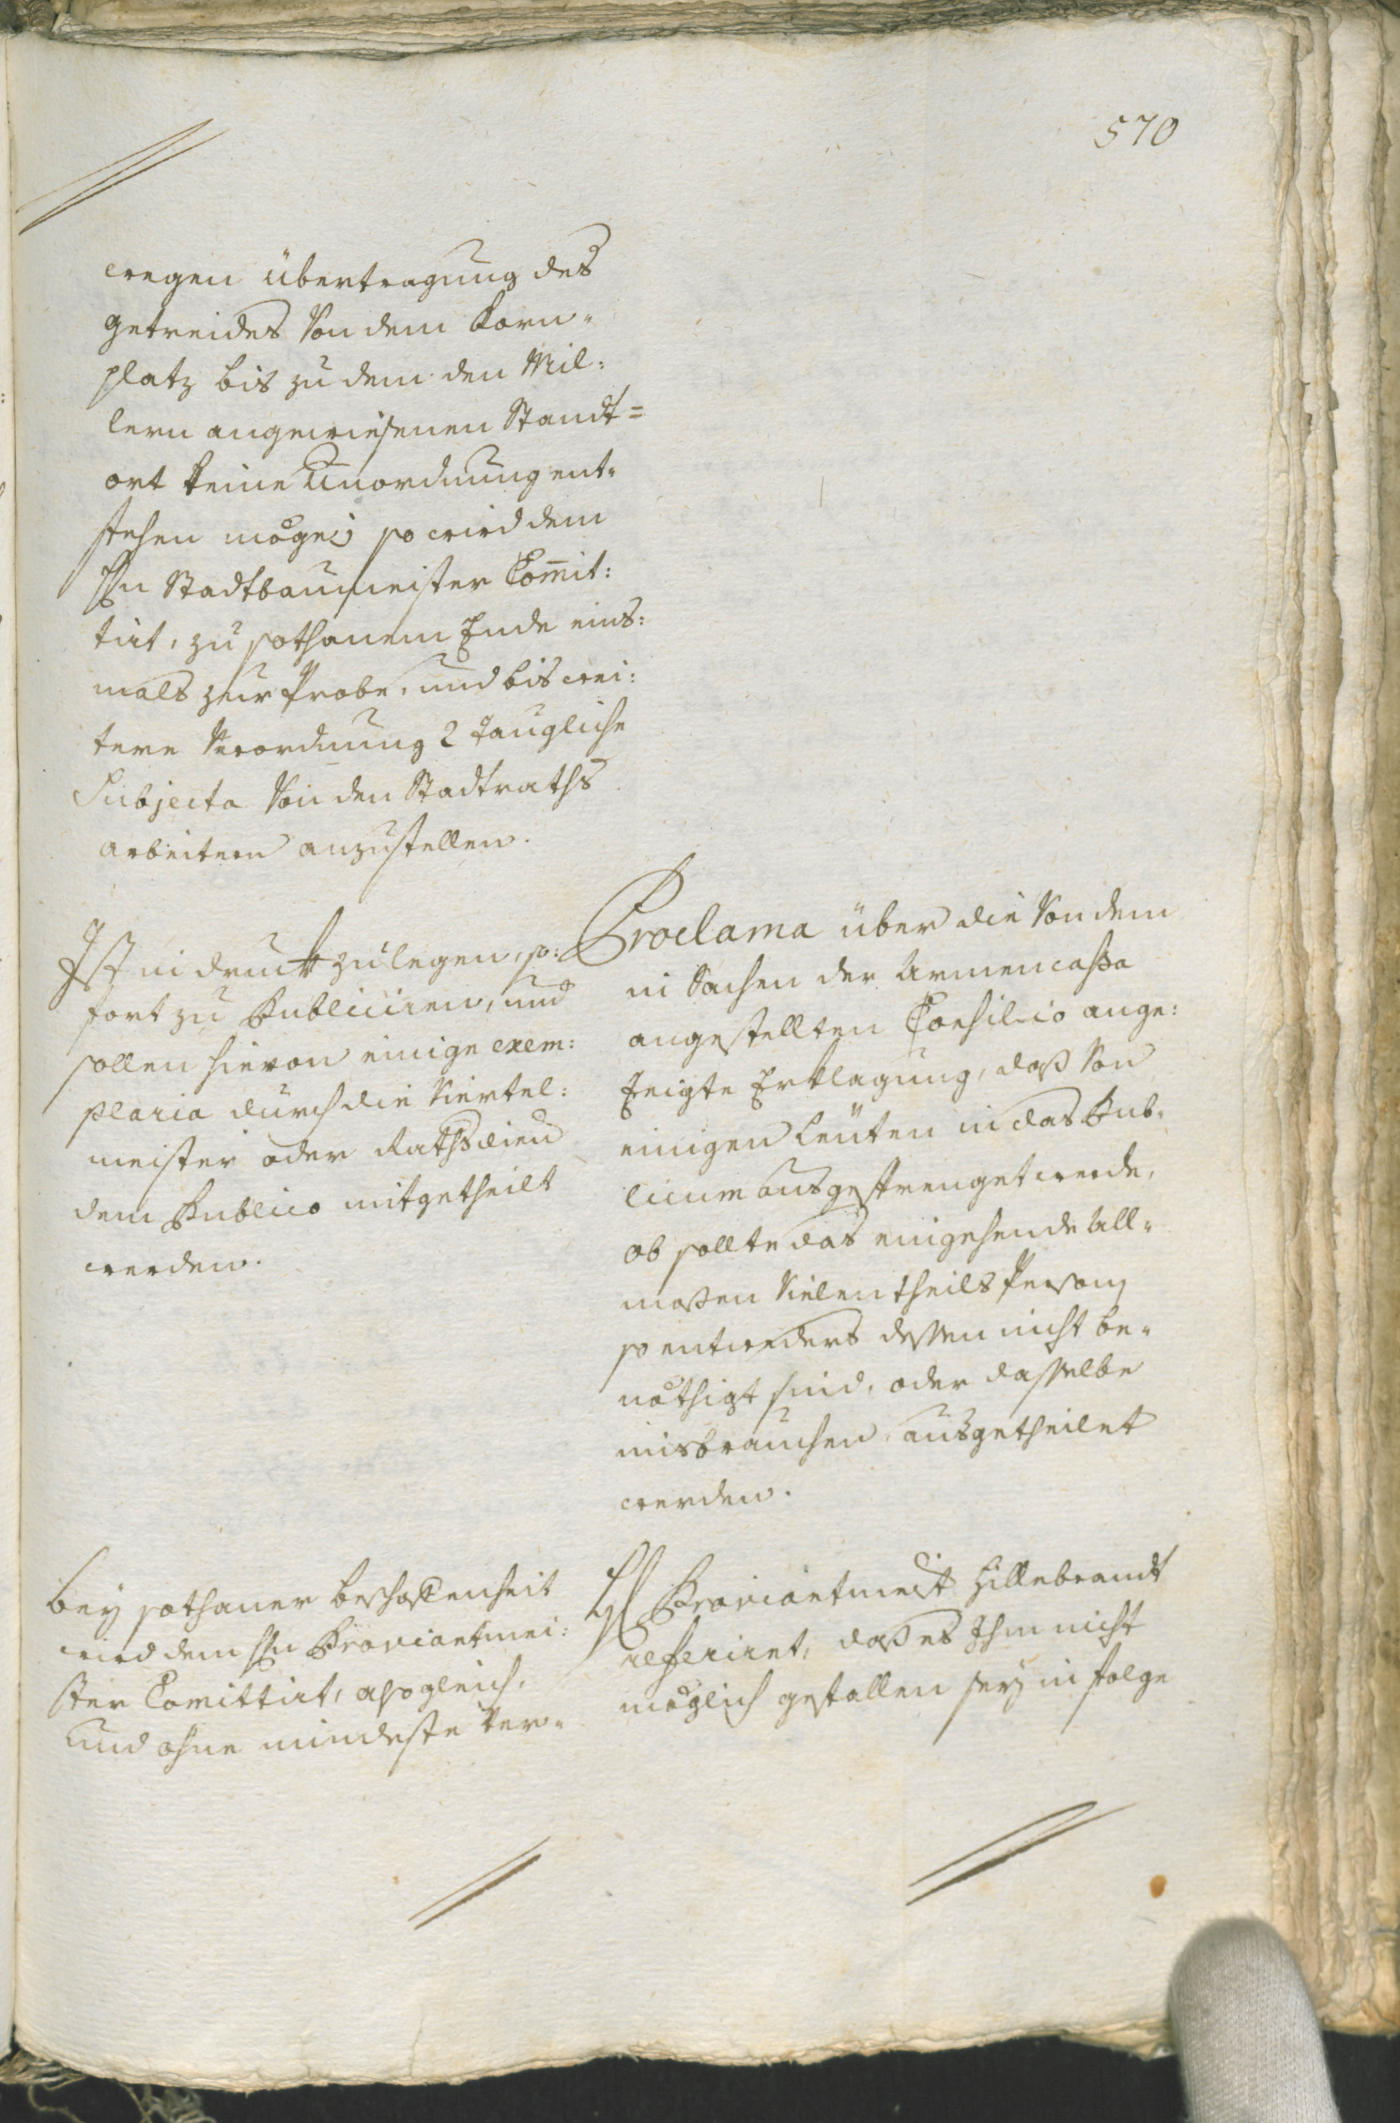 570
wegen übertragung des
getreides Von dem Korn-
platz bis zu dem den Mil:
lern angewiesenen Standt=
ort keine Unordnung ent-
stehen möge; so wird dem
Hn Stadtbaumeister Com̄it:
tirt, zu sothanem Ende eins:
mals zur Probe, und bis wei:
tere Verordnung 2 taugliche
Subjecta Von den Stadtraths
arbeitern anzustellen.
Ist in druck zu legen, so:
fort zu Publiciren, und
sollen hievon einige exem:
plaria durch die Viertel:
meister oder Rathsdien
dem Publico mitgetheilt
werden.
Proclama über die Von dem
in Sachen der Armencassa
angestellten Consilio ange:
zeigte Erklagung, daß Von
einigen Leuten in das Pub-
licum ausgestrenget werde,
ob sollte das eingehende All-
mosen Vielentheils Person
so entweders dessen nicht be-
nöthigt sind, oder dasselbe
misbrauchen, ausgetheilet
werden.
Bey sothaner beschaffenheit
wird dem Hn Proviantmei:
ster Comittirt, alsogleich,
und ohne mindeste Ver-
H Proviantmeist Hillebrandt
referiret, daß es Ihm nicht
möglich gefallen sey in folge